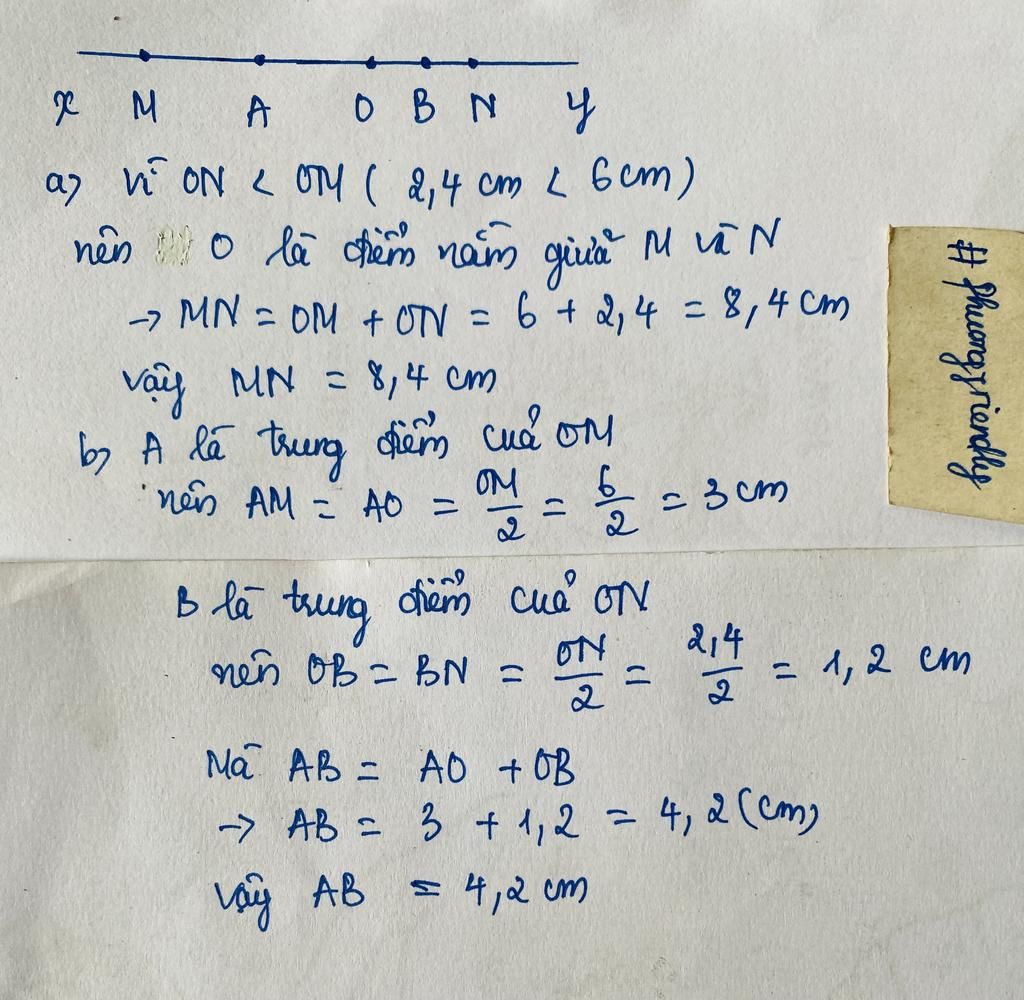 x M A O B N y
a) Vì ON < OM ( 2,4 cm < 6 cm )
nên O là điểm nằm giữa M và N
→ MN = OM + ON = 6 + 2,4 = 8,4 cm
vậy MN = 8,4 cm
b) A là trung điểm của OM
nên AM = AO = OM/2 = 6/2 = 3 cm
B là trung điểm của ON
nên OB = BN = ON/2 = 2,4/2 = 1,2 cm
Mà AB = AO + OB
→ AB = 3 + 1,2 = 4,2 (cm)
vậy AB = 4,2 cm
# phuongfriendly